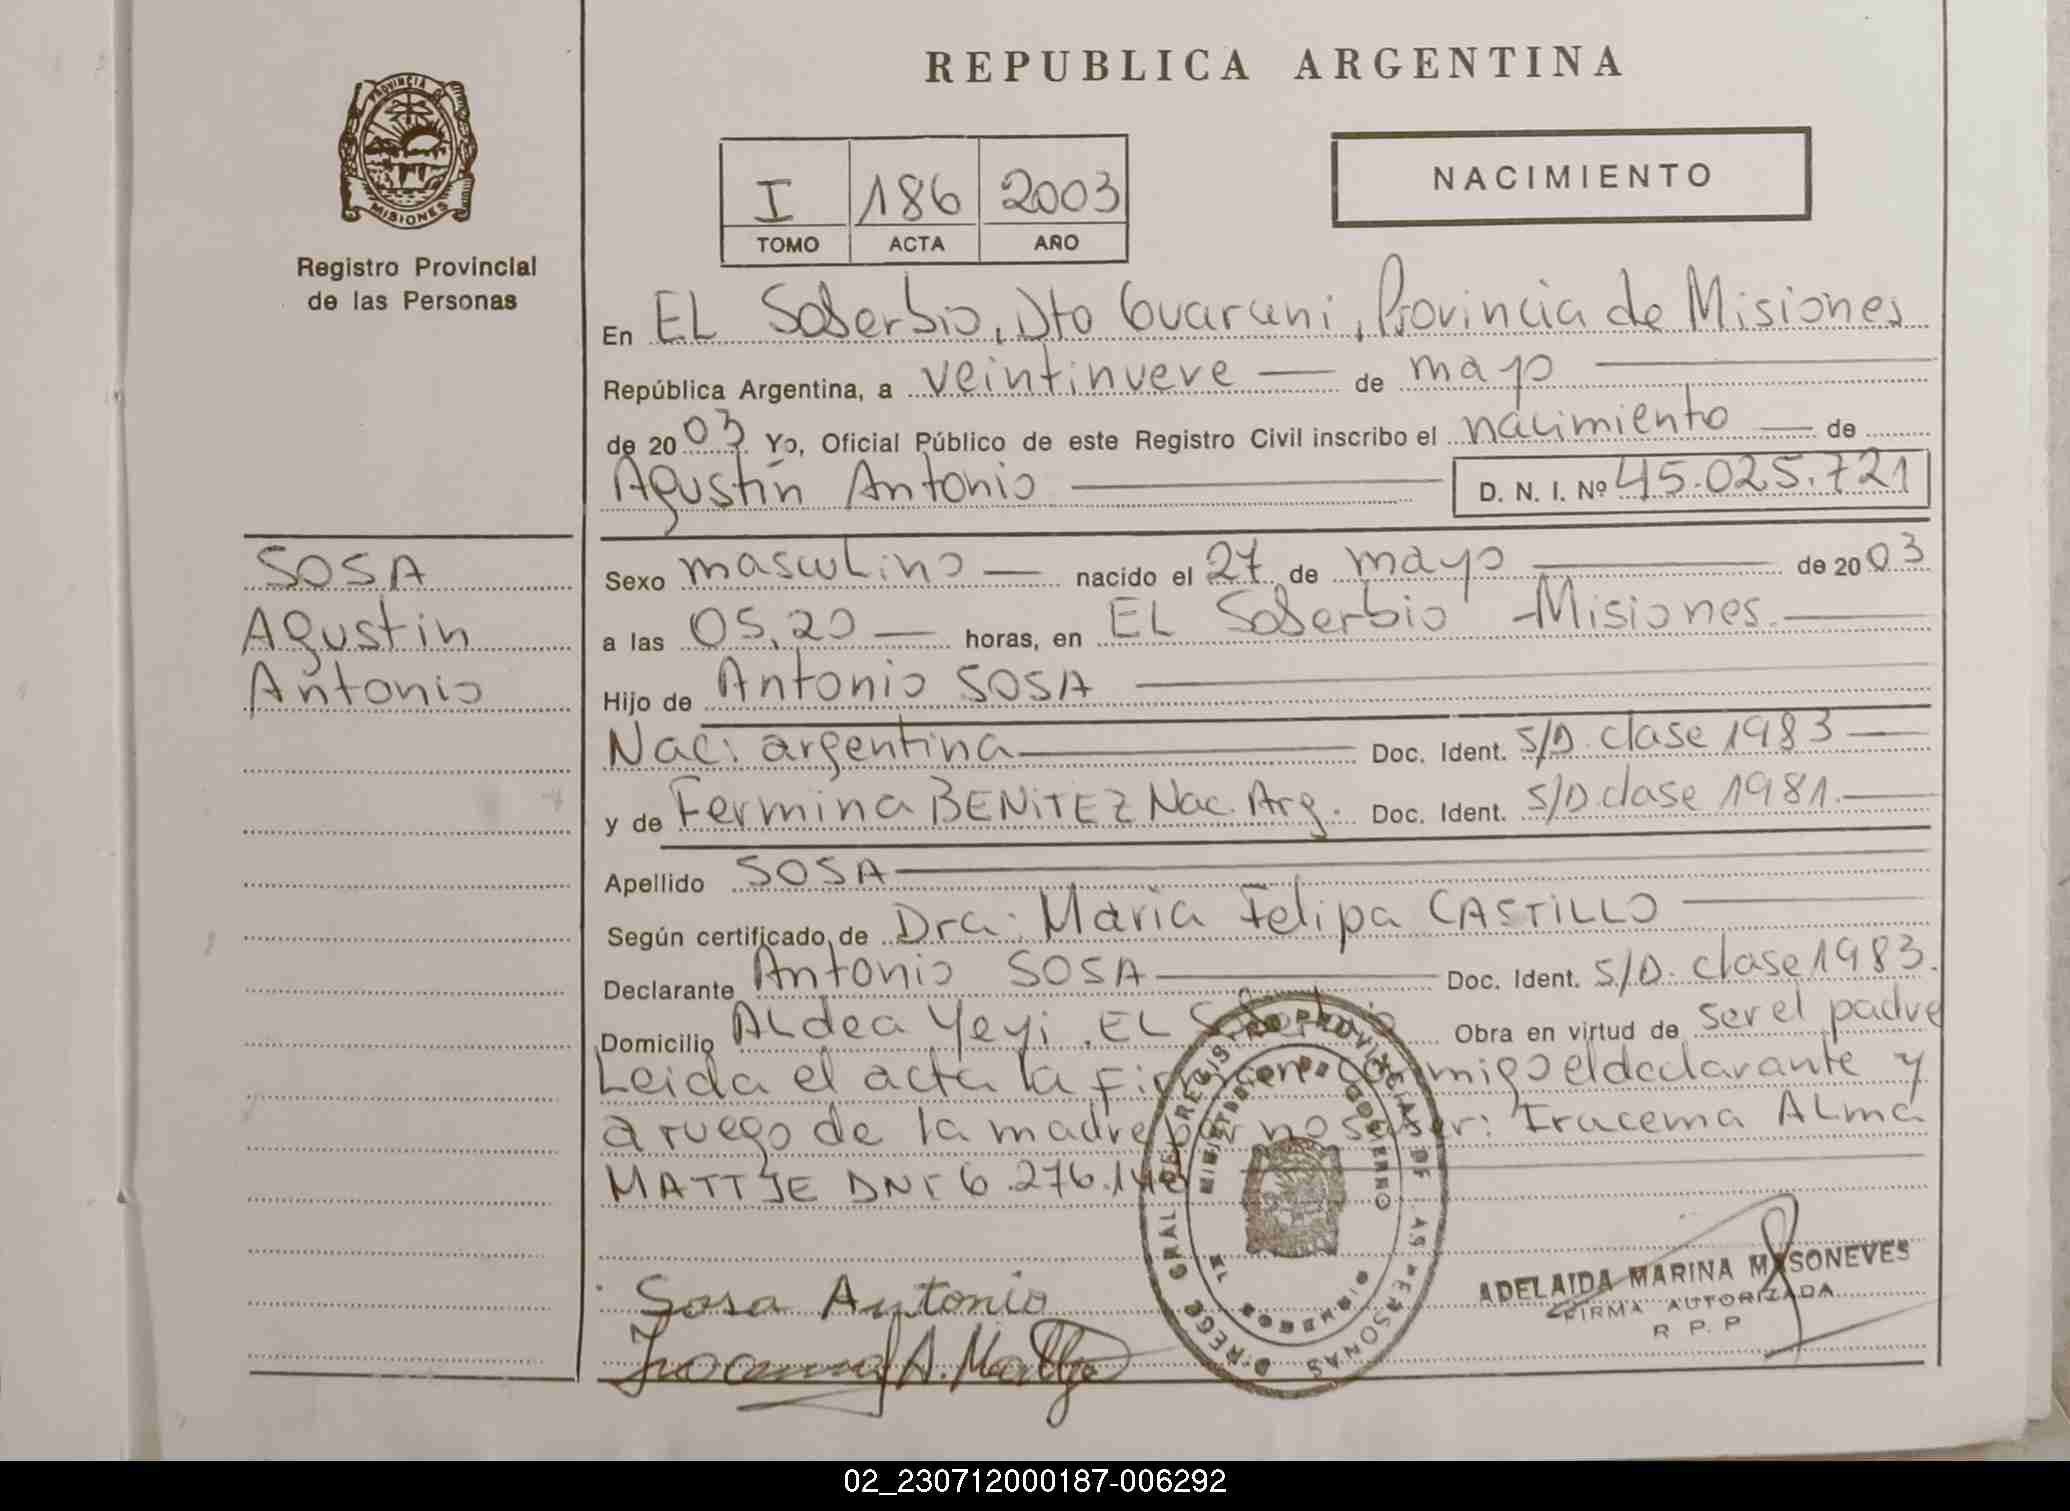 REPUBLICA ARGENTINA
PROVINCIA DE MISIONES
Registro Provincial
de las Personas
I 186 2003
TOMO ACTA AÑO
NACIMIENTO
En EL Soberbio, Dto Guarani, Provincia de Misiones
República Argentina, a veintinueve de mayo
de 2003 Yo, Oficial Público de este Registro Civil inscribo el nacimiento de
Agustín Antonio D. N. I. Nº 45.025.721
SOSA
Agustin
Antonio
Sexo masculino nacido el 27 de mayo de 2003
a las 05,20 horas, en EL Soberbio - Misiones.
Hijo de Antonio SOSA
Naci argentina Doc. Ident. S/D. clase 1983
y de Fermina BENITEZ Nac. Arg. Doc. Ident. S/D. clase 1981.
Apellido SOSA
Según certificado de Dra. Maria Felipa CASTILLO
Declarante Antonio SOSA Doc. Ident. S/D. clase 1983.
Domicilio ALdea Yeyi, EL Soberbio Obra en virtud de ser el padre
Leida el acta la firman conmigo el declarante y
a ruego de la madre por no saber: Iracema ALma
MATTJE DNI 6.276.
Sosa Antonio
ADELAIDA MARINA MASONEVES
FIRMA AUTORIZADA
R. P. P
MINISTERIO DE GOBIERNO
MISIONES
02_230712000187-006292